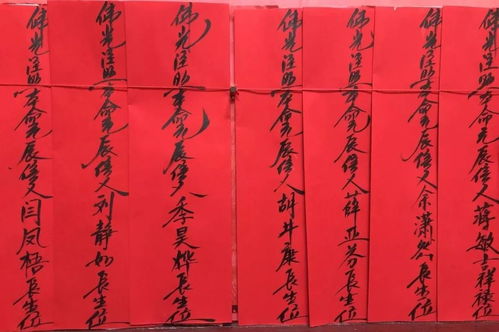 佛光注照本命元辰信人蒋敏祥禄位
佛光注照本命元辰信人余潇然長生位
佛光注照本命元辰信人薛亚芬長生位
佛光注照本命元辰信人胡井康長生位
佛光注照本命元辰信人季昊烨長生位
佛光注照本命元辰信人刘静如長生位
佛光注照本命元辰信人闫凤梧長生位